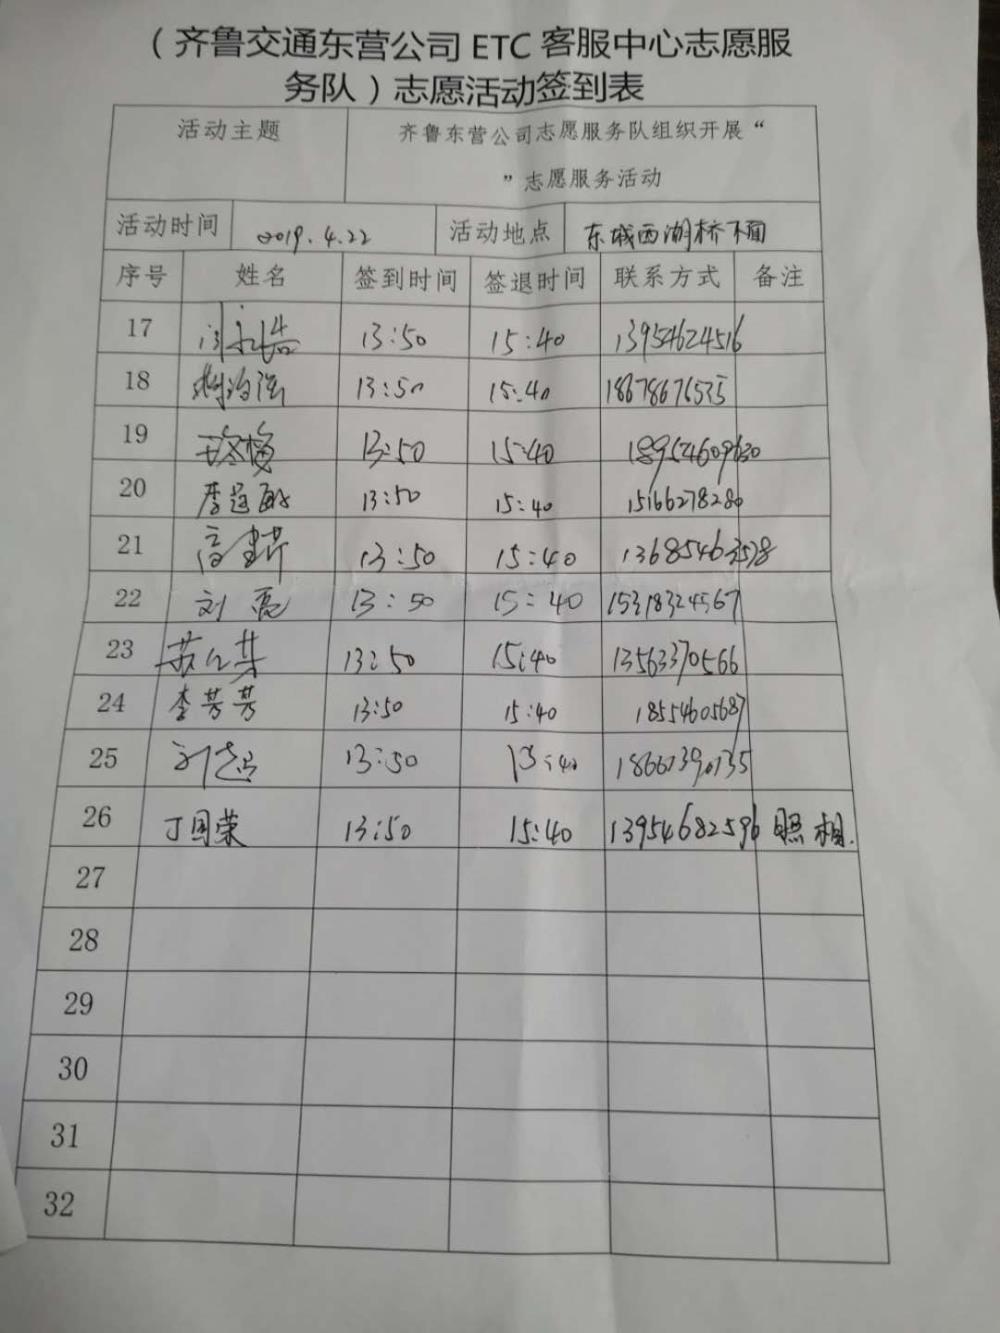 （齐鲁交通东营公司 ETC 客服中心志愿服
务队）志愿活动签到表
活动主题 齐鲁东营公司志愿服务队组织开展“
”志愿服务活动
活动时间 2019.4.22 活动地点 东城西湖桥下面
序号 姓名 签到时间 签退时间 联系方式 备注
17 13:50 15:40 13954624516
18 13:50 15:40 18678676535
19 13:50 15:40 18954609630
20 13:50 15:40 15166278280
21 13:50 15:40 13685463578
22 刘亮 13:50 15:40 15318324567
23 13:50 15:40 13563370566
24 李芳芳 13:50 15:40 18554605687
25 13:50 15:40
26 丁国荣 13:50 15:40 13954682596 照相.
27
28
29
30
31
32